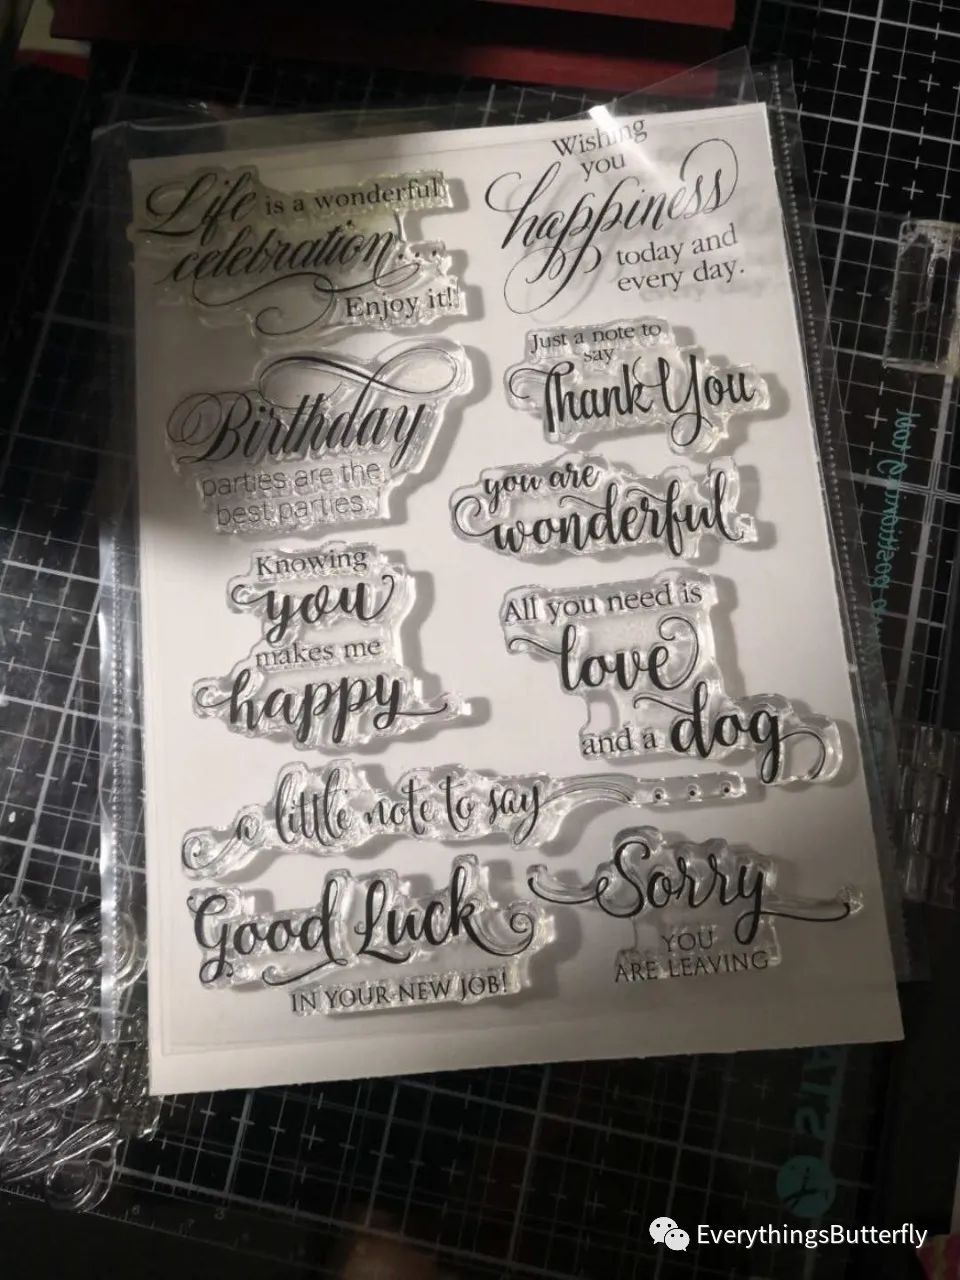 Life is a wonderful
celebration...
Enjoy it!
Wishing
you
happiness
today and
every day.
Birthday
parties are the
best parties.
Just a note to
say
Thank You
you are
wonderful
Knowing
you
makes me
happy
All you need is
love
and a dog
a little note to say
Good Luck
IN YOUR NEW JOB!
Sorry
YOU
ARE LEAVING
EverythingsButterfly